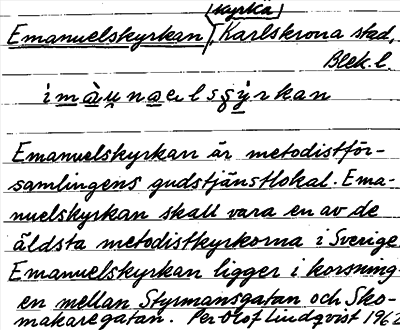 kyrka
Emanuelskyrkan, Karlskrona stad,
Blek. l.
Emanuelskyrkan är metodistför-
samlingens gudstjänstlokal. Ema-
nuelskyrkan skall vara en av de
äldsta metodistkyrkorna i Sverige
Emanuelskyrkan ligger i korsning-
en mellan Styrmansgatan och Sko-
makaregatan. Per Olof Lindqvist 1962